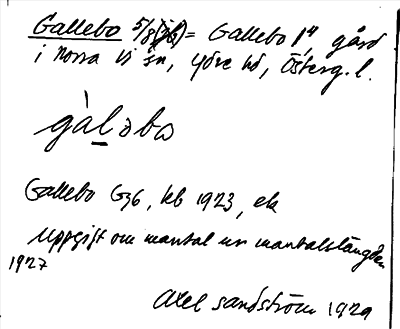 Gallebo 5/8 = Gallebo 1/4, gård
i Norra Vi sn, Ydre hd, Österg. l.
gàlәbo
Gallebo G36, kb 1923, ek
Uppgift om mantal ur mantalslängden
1927
Axel Sandström 1929